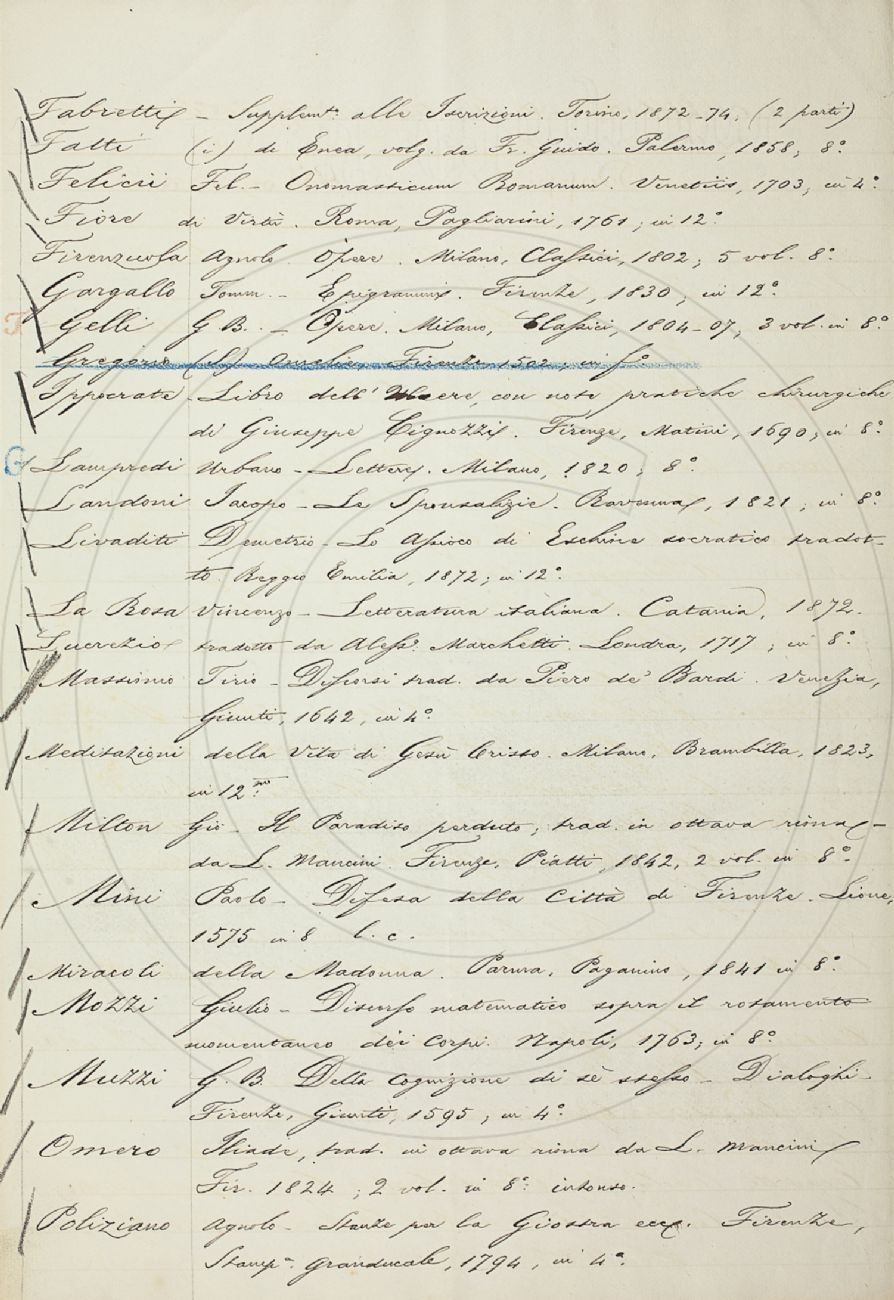 Fabretti – Supplemto alle Iscrizioni. Torino, 1872-74. (2 parti)
Fatti (i) di Enea, volg. da Fr. Guido. Palermo, 1858; 8o.
Felicii Fel. – Onomasticum Romanum. Venetiis, 1703, in 4o.
Fiore di Virtù. Roma, Pagliarini, 1761; in 12o.
Firenzuola Agnolo. Opere. Milano, Classici, 1802; 5 vol. 8o.
Gargallo Tomm. – Epigrammi. Firenze, 1830; in 12o.
Gelli G B. – Opere. Milano, Classici, 1804-07; 3 vol. in 8o.
Gregorio (S.) Omelie. Firenze 1502; in fo.
Ippocrate – Libro dell' Ulcere, con note pratiche chirurgiche
di Giuseppe Cignozzi. Firenze, Matini, 1690; in 8o.
G
Lampredi Urbano – Lettere. Milano, 1820; 8o.
Landoni Jacopo – Le Sponsalizie. Ravenna, 1821; in 8o.
Livaditi Demetrio – Lo Assioco di Eschine socratico tradot-
to. Reggio Emilia, 1872; in 12o.
La Rosa Vincenzo – Letteratura italiana. Catania, 1872.
Lucrezio tradotto da Aless. Marchetti. Londra, 1717; in 8o.
Massimo Tirio – Discorsi trad. da Piero de' Bardi. Venezia,
Giunti, 1642, in 4o.
Meditazioni della Vita di Gesù Cristo. Milano, Brambilla, 1823,
in 12mo.
Milton Gio – Il Paradiso perduto; trad. in ottava rima –
da L. Mancini. Firenze, Piatti, 1842, 2 vol. in 8o.
Mini Paolo – Difesa della Città di Firenze. Lione,
1575 in 8 l. c.
Miracoli della Madonna. Parma, Paganino, 1841 in 8o.
Mozzi Giulio – Discorso matematico sopra il rotamento
momentaneo dei corpi. Napoli, 1763; in 8o.
Muzzi G. B. Della Cognizione di sè stesso – Dialoghi –
Firenze, Giunti, 1595; in 4o.
Omero Iliade, trad. in ottava rima da L. Mancini
Fir. 1824; 2 vol. in 8o: intonso.
Poliziano Agnolo – Stanze per la Giostra ecc. Firenze,
Stampa Granducale, 1794, in 4o.